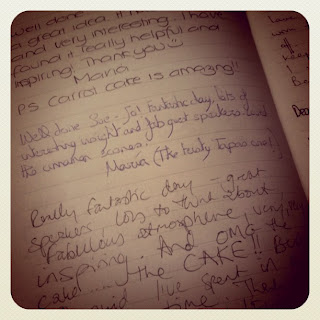 Well done
a great idea. It
and very interesting. I have
found it really helpful and
inspiring! Thank you
Maria
PS Carrot cake is amazing!!
Well done Zoe - Jo! Fantastic day, lots of
interesting insight and fab guest speakers. Loved
the cinnamon scones!
Maria (The Trusty Tapas one).
Really fantastic day - great
speakers lots to think about
Fabulous atmosphere, very,
inspiring. And OMG the
Cake.... the CAKE!! Best
quid I've spent in
time. The